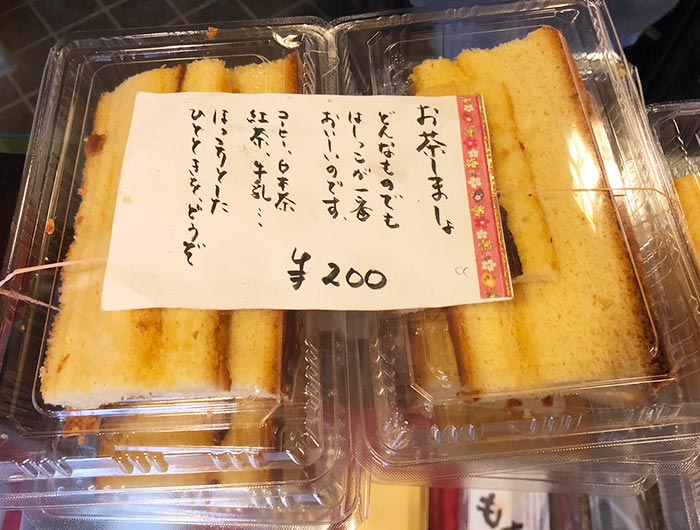 お茶しましょ
どんなものでも
はしっこが一番
おいしいのです。
コーヒー、日本茶
紅茶、牛乳…
ほっこりとした
ひとときを、どうぞ
¥200
も